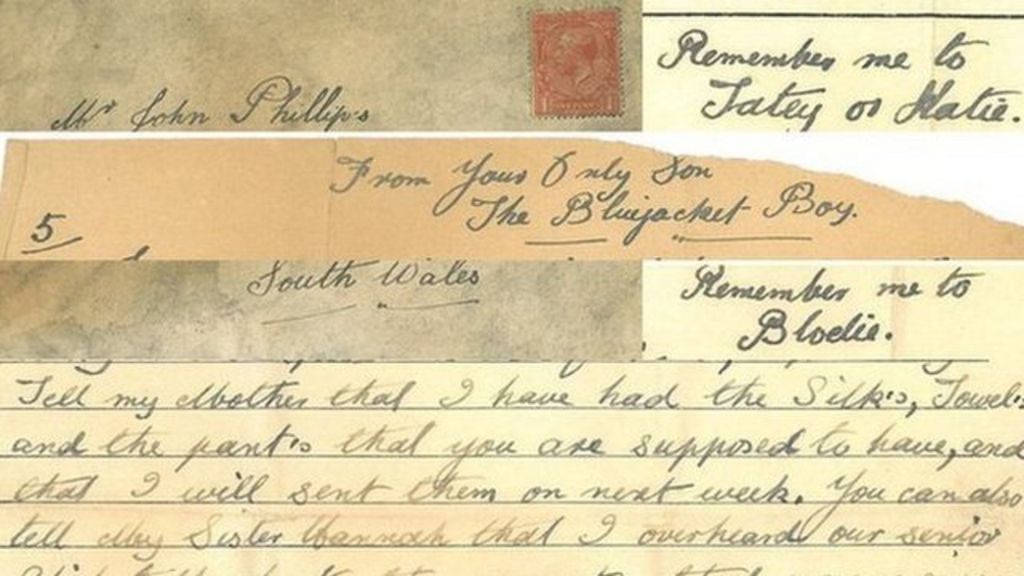 Mr John Phillips
Remember me to
Tatey or Katie.
From Your Only Son
The Bluejacket Boy.
5
South Wales
Remember me to
Blodie.
Tell my Mother that I have had the Silk's, Towel's
and the pant's that you are supposed to have, and
that I will sent them on next week. You can also
tell My Sister Hannah that I overheard our senior